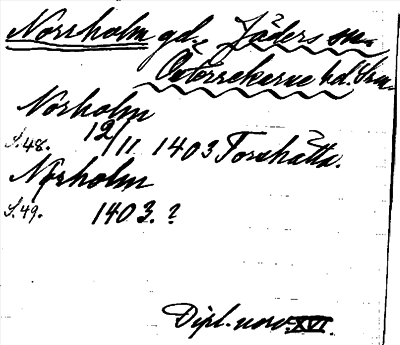 Norrholm gd. Jäders sn.
Österrekarne hd. Srm.
Norholm
S. 48. 12/11 1403 Torshätta.
Norholm
S. 49. 1403. ?
Dipl. norv. XVI.